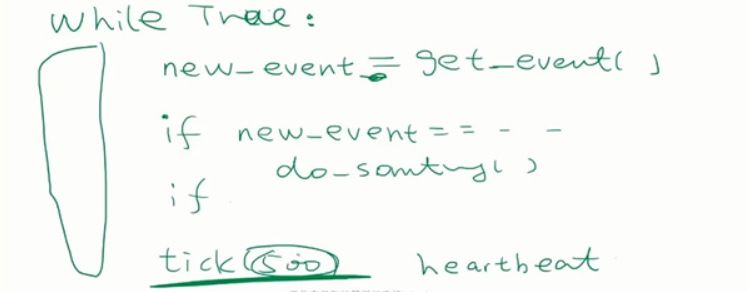 While True:
new_event = get_event()
if new_event == - -
do_somtyg()
if
tick(500) heartbeat